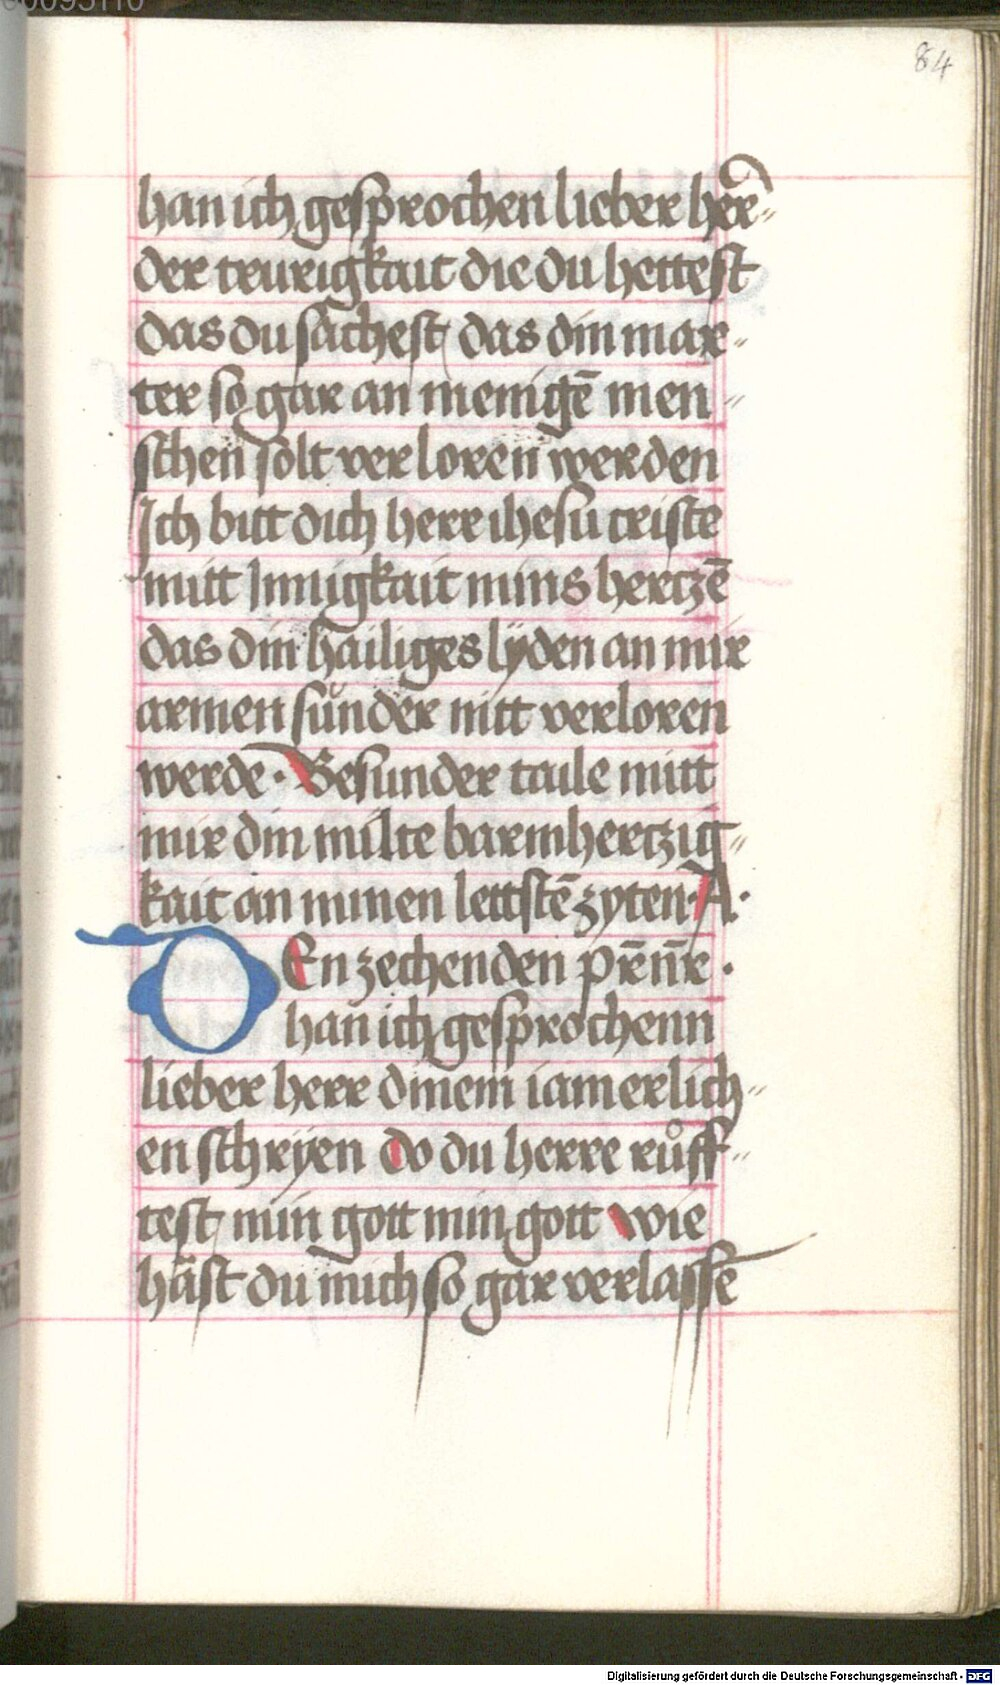 84
han ich gesprochen lieber her̄„
der trurigkait die du hettest
das du sächest das din mar„
ter so gar an menigē men„
schen sölt verloren werden
Ich bitt dich herre ihesu criste
mitt Innigkait mins hertzē
das din hailiges lyden an mir
armen sünder nitt verloren
werde · Besunder taile mitt
mir din milte barmhertzig„
kait an minen lettstē zyten · A ·
DEn zechenden pr̄e nr̄ ·
han ich gesprochenn
lieber herr dinem iamerlich„
en schryen do du herre růff„
test min gott min gott wie
hast du mich so gar verlassē
Digitalisierung gefördert durch die Deutsche Forschungsgemeinschaft - DFG